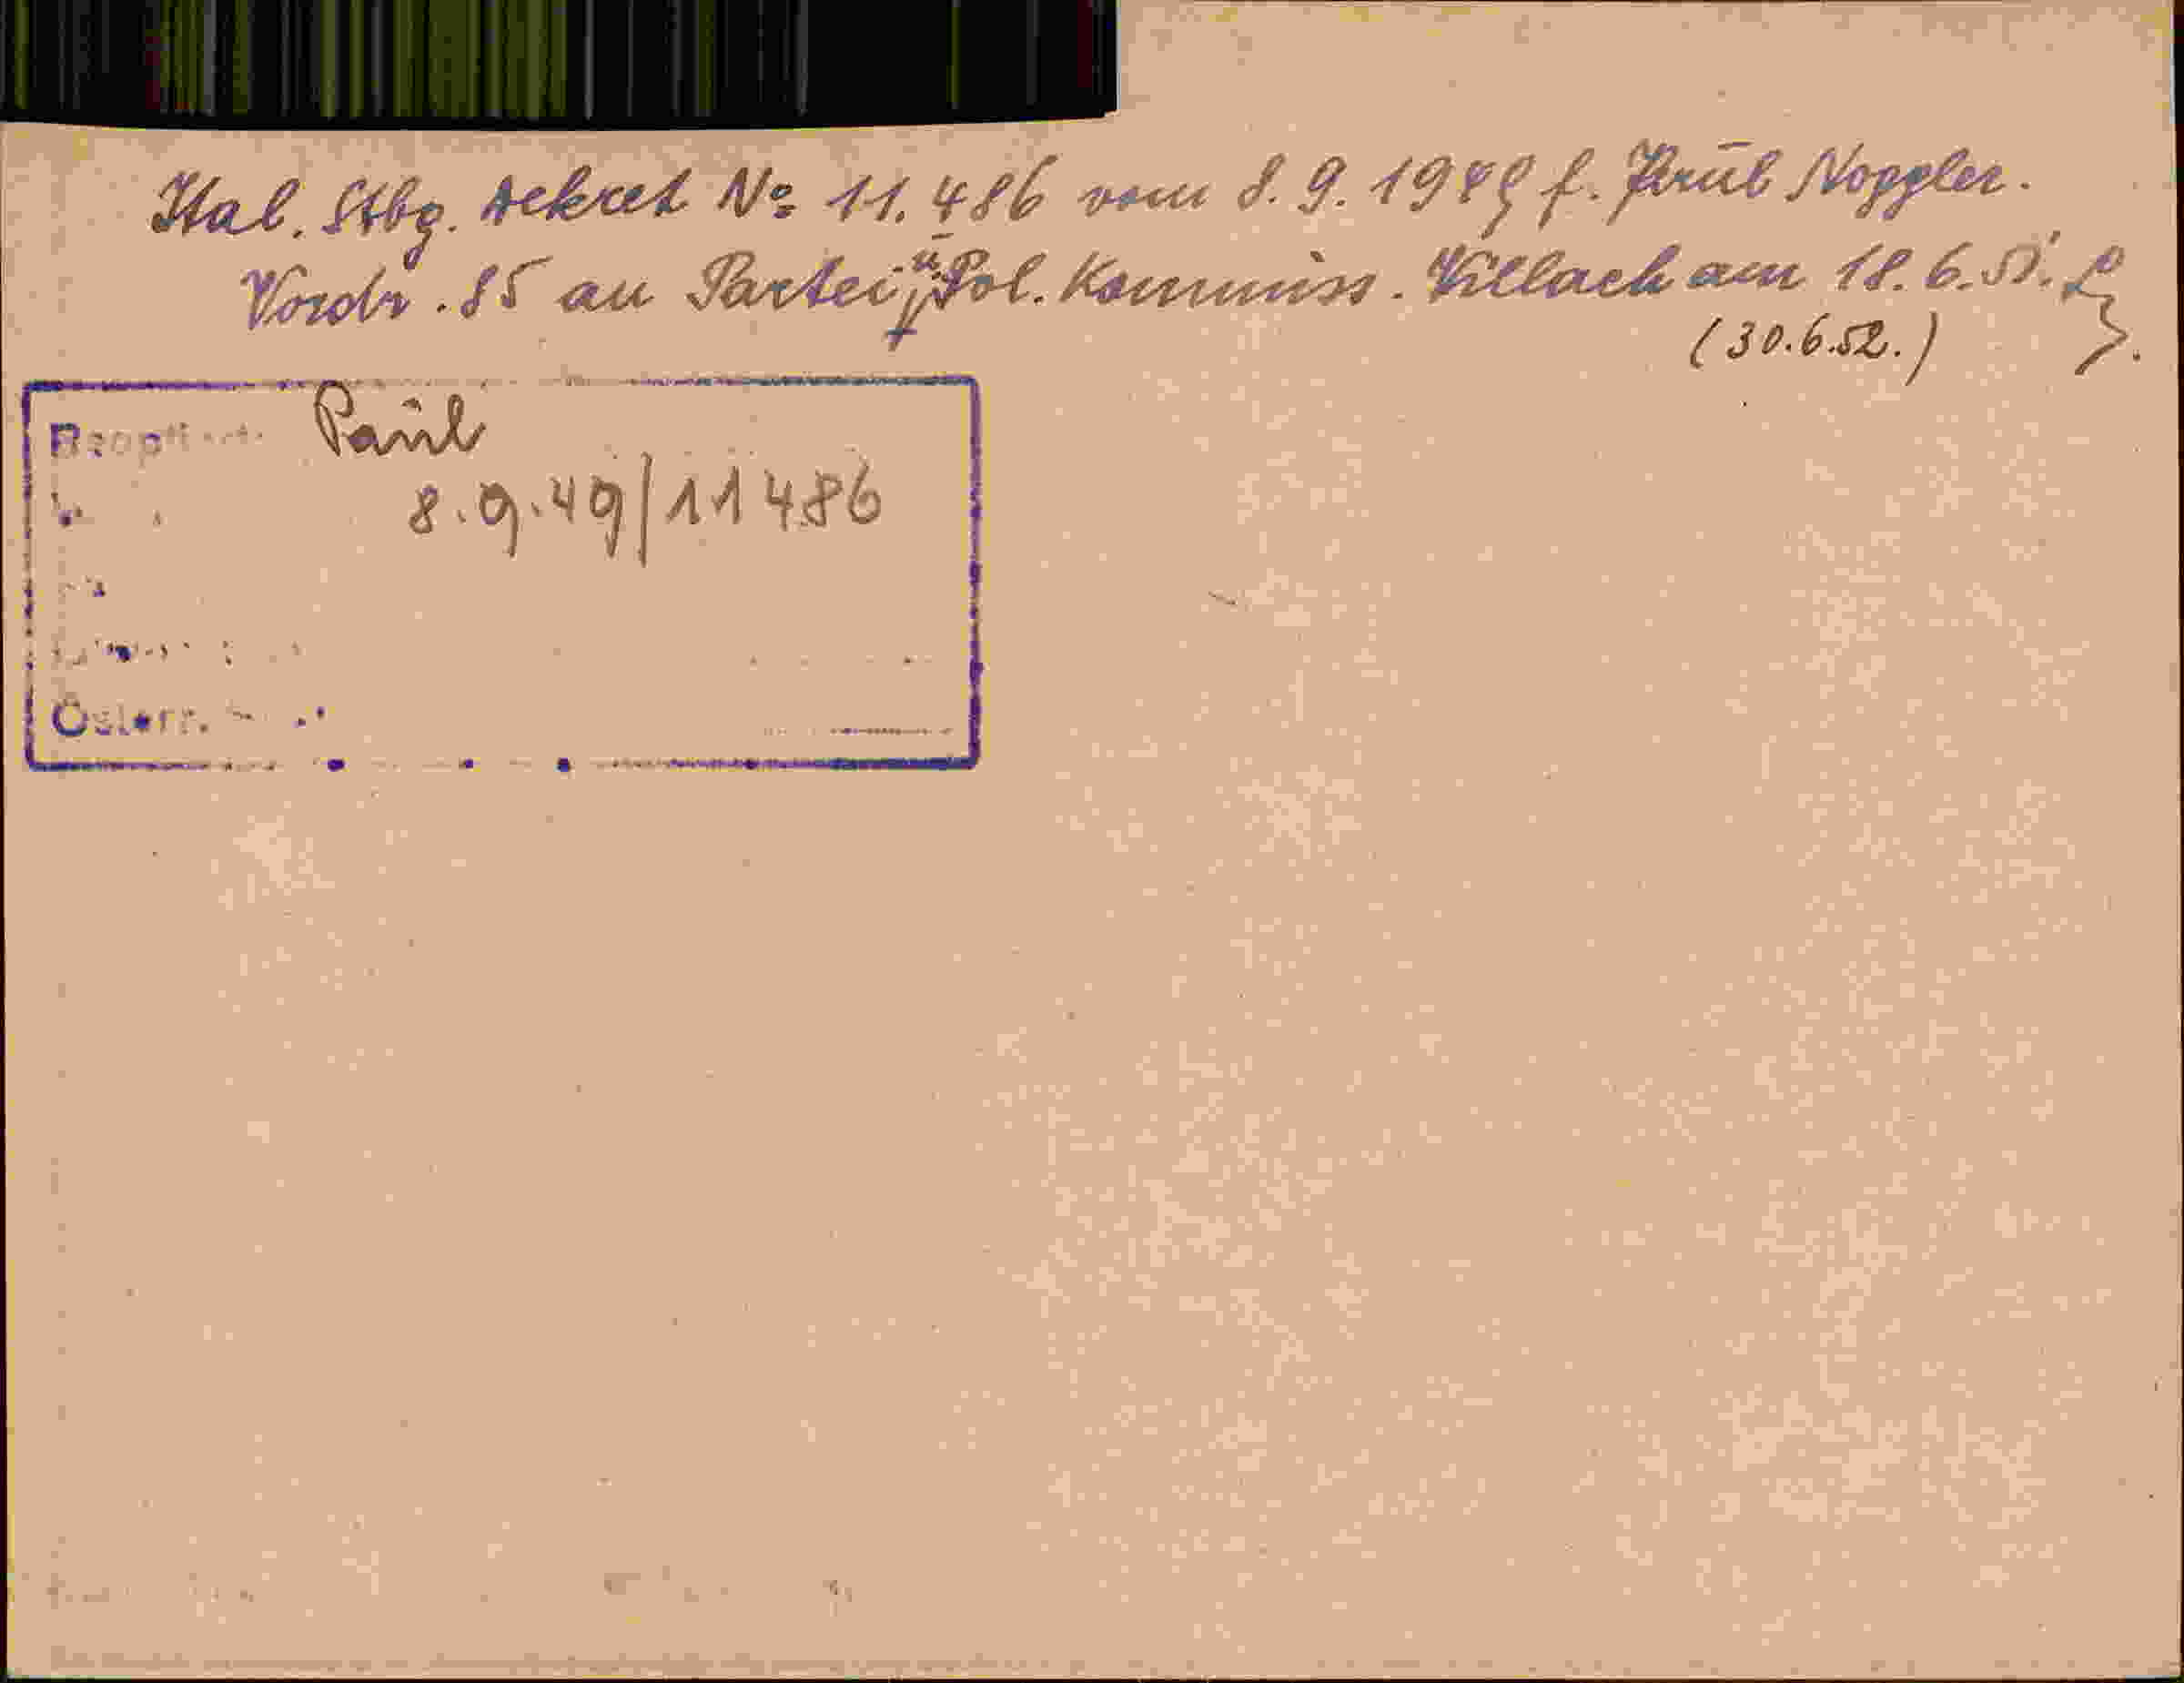 Ital. Stbg. Dekret No 11.486 vom 8.9.1949 f. Paul Noggler.
Vordr. 85 an Partei u. Pol. Kommiss. Villach am 18.6.51.
(30.6.52.)
Paul
8.9.49/11486
Österr.